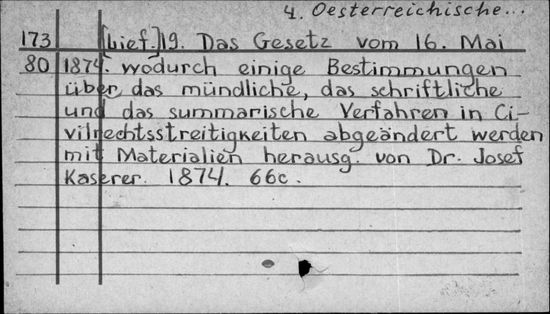 4. Oesterreichische...
173 [Lief.]19. Das Gesetz vom 16. Mai
80 1874. wodurch einige Bestimmungen
über das mündliche, das schriftliche
und das summarische Verfahren in Ci-
vilrechtsstreitigkeiten abgeändert werden
mit Materialien herausg. von Dr. Josef
Kaserer. 1874. 66c.